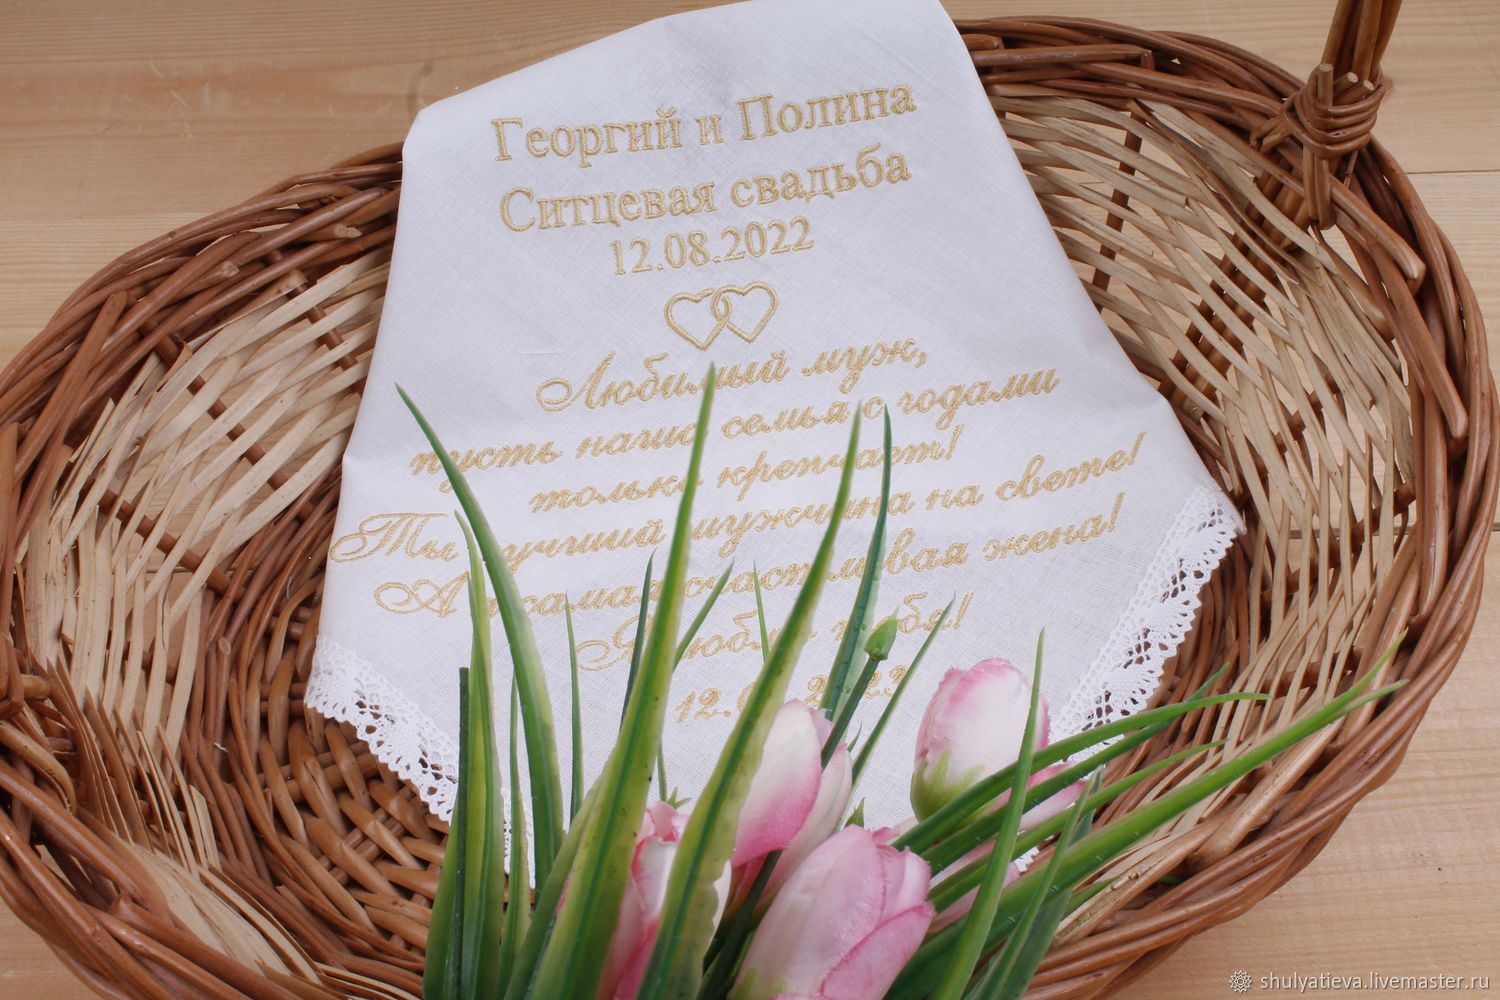 Георгий и Полина
Ситцевая свадьба
12.08.2022
Любимый муж,
пусть наша семья с годами
только крепчает!
Ты лучший мужчина на свете!
А я самая счастливая жена!
Я люблю тебя!
shulyatieva.livemaster.ru